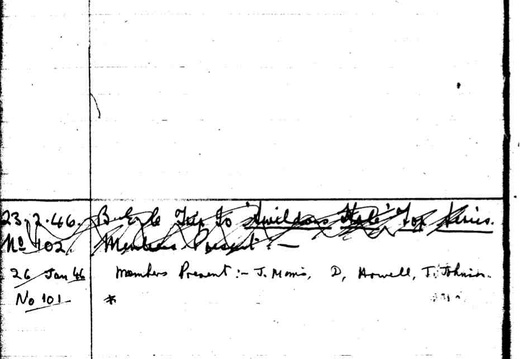 23.2.46. Bicycle Trip to 'Swildons Hole' for Series.
No 102. Members Present :-
26 Jan 46 Members Present :- J. Morris, D, Howell, T. Johnson.
No 101 *